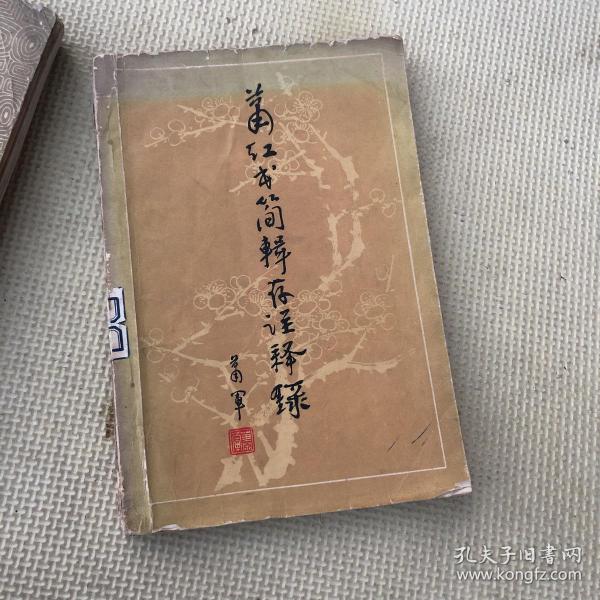 萧红书简辑存注释录
萧军
孔夫子旧书网
www.kongfz.com